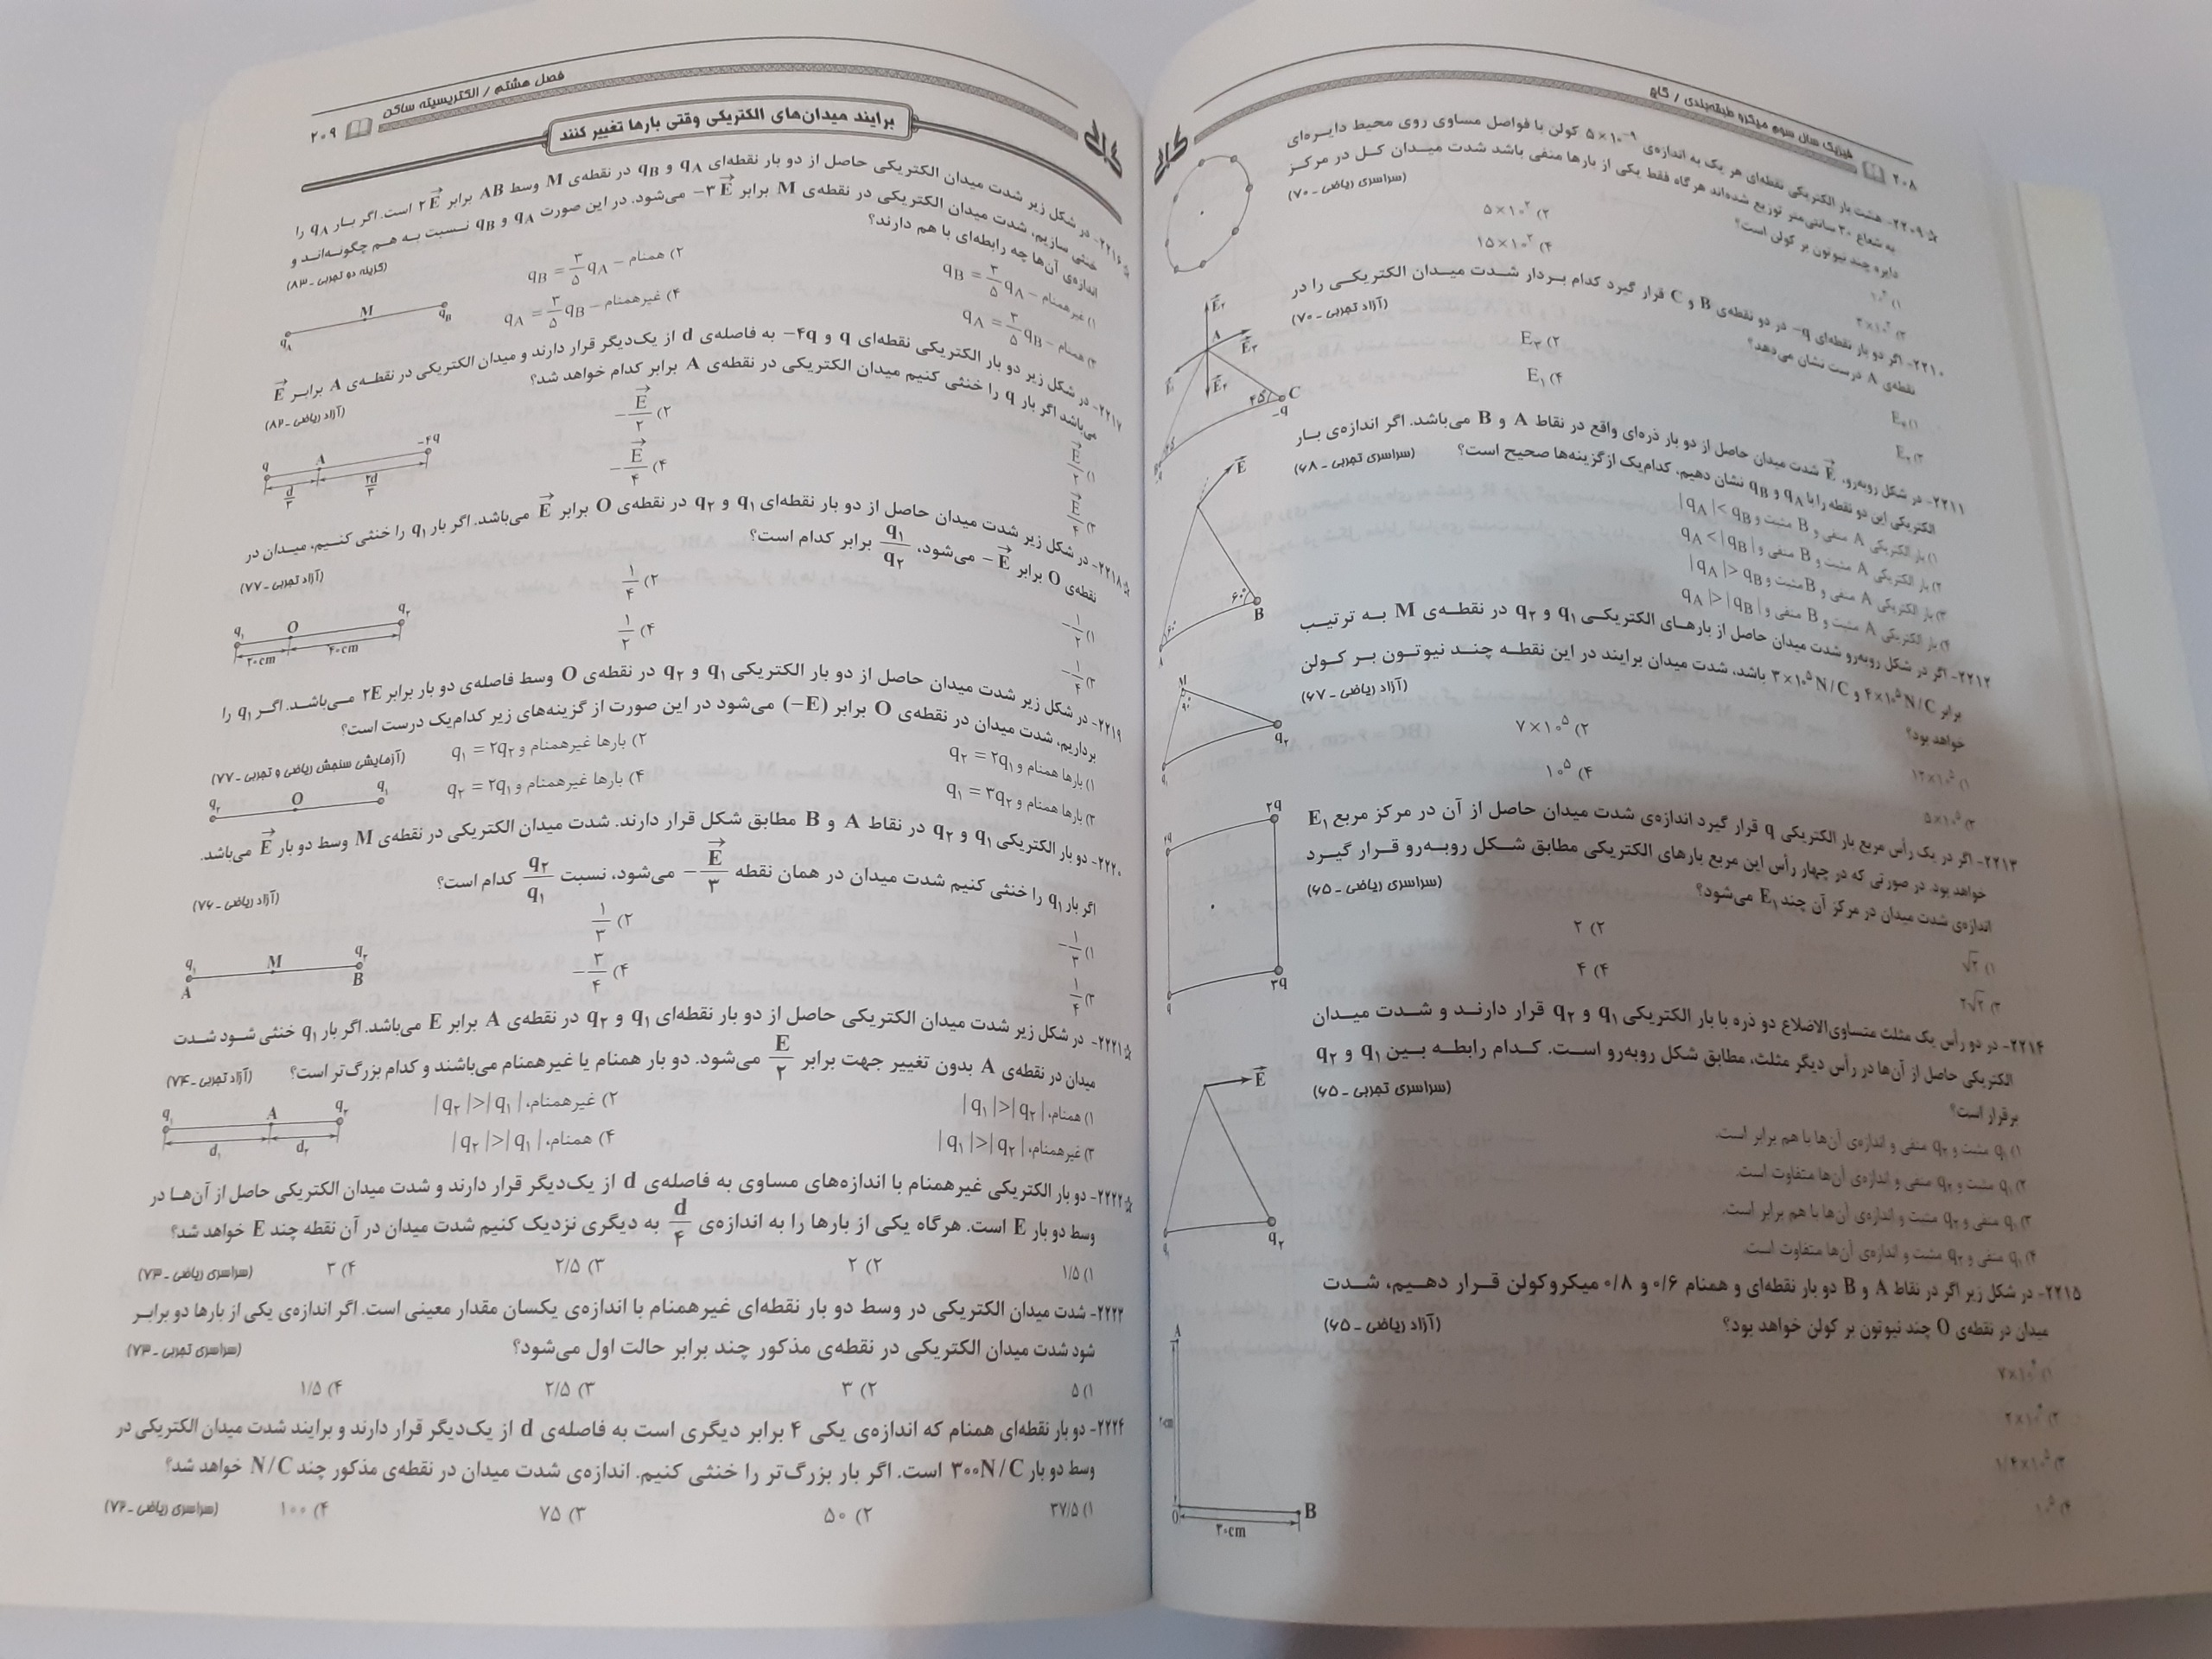 ۲۰۸ فیزیک سال سوم میکرو طبقه‌بندی / گاج
۲۲۰۹- هشت بار الکتریکی نقطه‌ای هر یک به اندازه‌ی ۵×۱۰⁻⁹ کولن با فواصل مساوی روی محیط دایره‌ای
به شعاع ۳۰ سانتی‌متر توزیع شده‌اند هرگاه فقط یکی از بارها منفی باشد شدت میدان کل در مرکز
دایره چند نیوتون بر کولن است؟ (سراسری ریاضی ـ ۷۰)
۲) ۵×۱۰²
۴) ۱۵×۱۰²
۲۲۱۰- اگر دو بار نقطه‌ای q- در دو نقطه‌ی B و C قرار گیرد کدام بردار شدت میدان الکتریکی را در
نقطه‌ی A درست نشان می‌دهد؟ (آزاد تجربی ـ ۷۰)
۲) E₃
۴) E₁
A
C
-q
۴۵°
۲۲۱۱- در شکل روبه‌رو، E شدت میدان حاصل از دو بار ذره‌ای واقع در نقاط A و B می‌باشد. اگر اندازه‌ی بار
الکتریکی این دو نقطه را با qA و qB نشان دهیم، کدام‌یک از گزینه‌ها صحیح است؟ (سراسری تجربی ـ ۶۸)
۱) بار الکتریکی A منفی و B مثبت و |qA| < qB
۲) بار الکتریکی A مثبت و B منفی و qA < |qB|
۳) بار الکتریکی A منفی و B مثبت و |qA| > qB
۴) بار الکتریکی A مثبت و B منفی و qA > |qB|
E
۶۰°
B
۲۲۱۲- اگر در شکل روبه‌رو شدت میدان حاصل از بارهای الکتریکی q₁ و q₂ در نقطه‌ی M به ترتیب
برابر ۴×۱۰⁵ N/C و ۳×۱۰⁵ N/C باشد، شدت میدان برایند در این نقطه چند نیوتون بر کولن
خواهد بود؟ (آزاد ریاضی ـ ۶۷)
۱) ۱۲×۱۰⁵
۲) ۷×۱۰⁵
۳) ۵×۱۰⁵
۴) ۱۰⁵
M
q₂
۲۲۱۳- اگر در یک رأس مربع بار الکتریکی q قرار گیرد اندازه‌ی شدت میدان حاصل از آن در مرکز مربع E₁
خواهد بود. در صورتی که در چهار رأس این مربع بارهای الکتریکی مطابق شکل روبه‌رو قرار گیرد
اندازه‌ی شدت میدان در مرکز آن چند E₁ می‌شود؟ (سراسری ریاضی ـ ۶۵)
۱) √۲
۲) ۲
۳) ۲√۲
۴) ۴
۲q
۳q
۲۲۱۴- در دو رأس یک مثلث متساوی‌الاضلاع دو ذره با بار الکتریکی q₁ و q₂ قرار دارند و شدت میدان
الکتریکی حاصل از آن‌ها در رأس دیگر مثلث، مطابق شکل روبه‌رو است. کدام رابطه بین q₁ و q₂
برقرار است؟ (سراسری تجربی ـ ۶۵)
۱) q₁ مثبت و q₂ منفی و اندازه‌ی آن‌ها با هم برابر است.
۲) q₁ مثبت و q₂ منفی و اندازه‌ی آن‌ها متفاوت است.
۳) q₁ منفی و q₂ مثبت و اندازه‌ی آن‌ها با هم برابر است.
۴) q₁ منفی و q₂ مثبت و اندازه‌ی آن‌ها متفاوت است.
E
q₁
q₂
۲۲۱۵- در شکل زیر اگر در نقاط A و B دو بار نقطه‌ای و همنام ۰/۶ و ۰/۸ میکروکولن قرار دهیم، شدت
میدان در نقطه‌ی O چند نیوتون بر کولن خواهد بود؟ (آزاد ریاضی ـ ۶۵)
۳) ۱/۴×۱۰⁵
۴) ۱۰⁵
A
O
B
۳۰cm
فصل هشتم / الکتریسیته ساکن ۲۰۹
برایند میدان‌های الکتریکی وقتی بارها تغییر کنند
۲۲۱۶- در شکل زیر شدت میدان الکتریکی حاصل از دو بار نقطه‌ای qA و qB در نقطه‌ی M وسط AB برابر ۲E است. اگر بار qA را
خنثی سازیم، شدت میدان الکتریکی در نقطه‌ی M برابر ۳E- می‌شود. در این صورت qA و qB نسبت به هم چگونه‌اند و
اندازه‌ی آن‌ها چه رابطه‌ای با هم دارند؟ (گزینه دو تجربی ـ ۸۳)
۱) غیرهمنام - qB = ۳/۵ qA
۲) همنام - qB = ۳/۵ qA
۳) همنام - qA = ۳/۵ qB
۴) غیرهمنام - qA = ۳/۵ qB
qA M qB
۲۲۱۷- در شکل زیر دو بار الکتریکی نقطه‌ای q و ۴q- به فاصله‌ی d از یک‌دیگر قرار دارند و میدان الکتریکی در نقطه‌ی A برابر E
می‌باشد اگر بار q را خنثی کنیم میدان الکتریکی در نقطه‌ی A برابر کدام خواهد شد؟ (آزاد ریاضی ـ ۸۲)
۱) E/۲
۲) -E/۲
۳) E/۴
۴) -E/۴
q A -۴q
d/۳ ۲d/۳
۲۲۱۸- در شکل زیر شدت میدان حاصل از دو بار نقطه‌ای q₁ و q₂ در نقطه‌ی O برابر E می‌باشد. اگر بار q₁ را خنثی کنیم، میدان در
نقطه‌ی O برابر E- می‌شود، q₁/q₂ برابر کدام است؟ (آزاد تجربی ـ ۷۷)
۱) -۱/۲
۲) ۱/۴
۳) -۱/۴
۴) ۱/۲
q₁ O q₂
۲۰cm ۴۰cm
۲۲۱۹- در شکل زیر شدت میدان حاصل از دو بار الکتریکی q₁ و q₂ در نقطه‌ی O وسط فاصله‌ی دو بار برابر ۲E می‌باشد. اگر q₁ را
برداریم، میدان در نقطه‌ی O برابر (E-) می‌شود در این صورت از گزینه‌های زیر کدام‌یک درست است؟
۱) بارها همنام و q₂ = ۲q₁
۲) بارها غیرهمنام و q₁ = ۲q₂ (آزمایشی سنجش ریاضی و تجربی ـ ۷۷)
۳) بارها همنام و q₁ = ۳q₂
۴) بارها غیرهمنام و q₂ = ۲q₁
q₂ O q₁
۲۲۲۰- دو بار الکتریکی q₁ و q₂ در نقاط A و B مطابق شکل قرار دارند. شدت میدان الکتریکی در نقطه‌ی M وسط دو بار E می‌باشد.
اگر بار q₁ را خنثی کنیم شدت میدان در همان نقطه -E/۳ می‌شود، نسبت q₂/q₁ کدام است؟ (آزاد ریاضی ـ ۷۶)
۲) ۱/۳
۳) ۱/۴
۴) -۳/۴
q₁ M q₂
A B
۲۲۲۱- در شکل زیر شدت میدان الکتریکی حاصل از دو بار نقطه‌ای q₁ و q₂ در نقطه‌ی A برابر E می‌باشد. اگر بار q₁ خنثی شود شدت
میدان در نقطه‌ی A بدون تغییر جهت برابر E/۲ می‌شود. دو بار همنام یا غیرهمنام می‌باشند و کدام بزرگ‌تر است؟ (آزاد تجربی ـ ۷۴)
۱) همنام، |q₁|>|q₂|
۲) غیرهمنام، |q₂|>|q₁|
۳) غیرهمنام، |q₁|>|q₂|
۴) همنام، |q₂|>|q₁|
q₁ A q₂
d₁ d₂
۲۲۲۲- دو بار الکتریکی غیرهمنام با اندازه‌های مساوی به فاصله‌ی d از یک‌دیگر قرار دارند و شدت میدان الکتریکی حاصل از آن‌ها در
وسط دو بار E است. هرگاه یکی از بارها را به اندازه‌ی d/۴ به دیگری نزدیک کنیم شدت میدان در آن نقطه چند E خواهد شد؟
۱) ۱/۵ ۲) ۲ ۳) ۲/۵ ۴) ۳ (سراسری ریاضی ـ ۷۳)
۲۲۲۳- شدت میدان الکتریکی در وسط دو بار نقطه‌ای غیرهمنام با اندازه‌ی یکسان مقدار معینی است. اگر اندازه‌ی یکی از بارها دو برابر
شود شدت میدان الکتریکی در نقطه‌ی مذکور چند برابر حالت اول می‌شود؟ (سراسری تجربی ـ ۷۳)
۱) ۵ ۲) ۳ ۳) ۲/۵ ۴) ۱/۵
۲۲۲۴- دو بار نقطه‌ای همنام که اندازه‌ی یکی ۴ برابر دیگری است به فاصله‌ی d از یک‌دیگر قرار دارند و برایند شدت میدان الکتریکی در
وسط دو بار ۳۰۰N/C است. اگر بار بزرگ‌تر را خنثی کنیم. اندازه‌ی شدت میدان در نقطه‌ی مذکور چند N/C خواهد شد؟
۱) ۳۷/۵ ۲) ۵۰ ۳) ۷۵ ۴) ۱۰۰ (سراسری ریاضی ـ ۷۲)